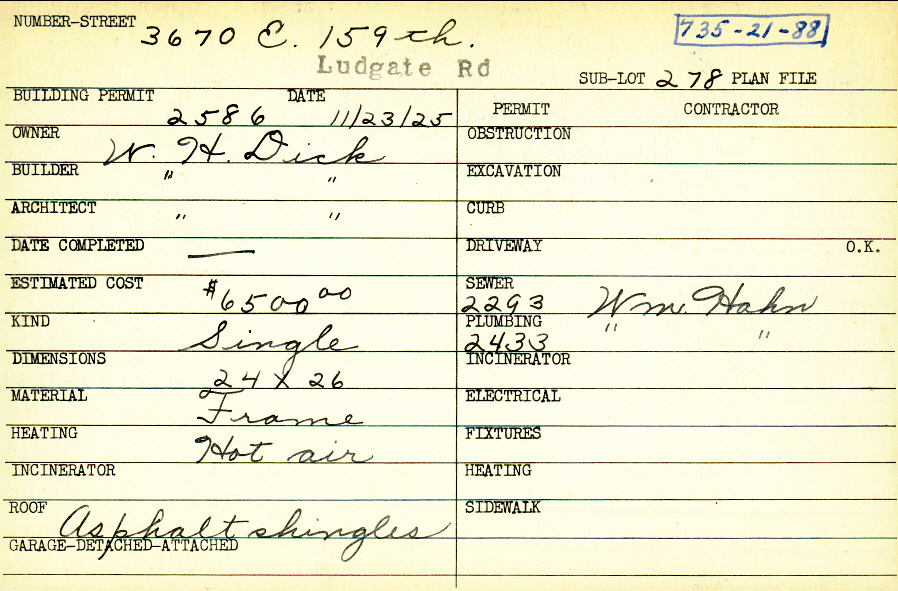 NUMBER-STREET 3670 E. 159th. 735-21-88
Ludgate Rd
SUB-LOT 278 PLAN FILE
BUILDING PERMIT 2586 DATE 11/23/25
PERMIT CONTRACTOR
OWNER W. H. Dick
OBSTRUCTION
BUILDER " "
EXCAVATION
ARCHITECT " "
CURB
DATE COMPLETED —
DRIVEWAY O.K.
ESTIMATED COST $6500 00
SEWER 2293 Wm. Hahn
KIND Single
PLUMBING 2433 " "
DIMENSIONS 24 X 26
INCINERATOR
MATERIAL Frame
ELECTRICAL
HEATING Hot air
FIXTURES
INCINERATOR
HEATING
ROOF Asphalt shingles
SIDEWALK
GARAGE-DETACHED-ATTACHED